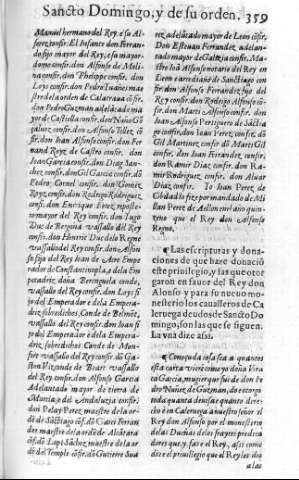 Sancto Domingo, y de su orden. 359
Manuel hermano del Rey è su Al-
ferez cõfir. El Infante don Ferran-
do fijo mayor del Rey, e su mayor-
domo confir. don Alfonso de Moli-
na confir. don Phelippe confir. don
Loys confir. don Pedro Iuañes maes
tre dela orden de Calatraua cõfir.
don Pedro Guzman adelãtado ma-
yor de Castilla confir. don Nuño Gõ
çalvez confir. don Alfonso Tellez cõ
fir. don Iuan Alfonso confir. don Fer
nand Royz de Castro confir. don
Ioan Garcia confir. don Diag San-
chez confir. don Gil Garcia confir. dõ
Pedro Cornel confir. don Gomez
Royz confir. don Rodrigo Rodriguez
confir. don Enrique Perez repostero
mayor del Rey confir. don Iugo
Duc de Bergoña vassallo del Rey
confir. don Enrric Duc de los Regne
vassallo del Rey confir. don Alfon
so fijo del Rey Ioan de Acre Empe
rador de Constantinopla, e dela Em
peradriz doña Berenguela conde,
vassallo del Rey confir. don Loys fi
jo del Emperador e dela Empera-
driz sobredichos, Conde de Belmõt,
vassallo del Rey confir. don Ioan fi
jo del Emperador e dela Empera-
driz sobredichos Conde de Mon-
fort vassallo del Rey confir. dõ Ga-
ston Vizconde de Beart vassallo
del Rey confir. don Alfonso Garcia
Adelantado mayor de tierra de
Murcia, e del Andaluzia confir.
don Pelay Perez maestre dela or-
dẽ de Sãctiago cõfir. dõ Garci Ferran
dez maestre dela ordẽ de Alcãtara
cõfir. dõ Lope Sãchez maestre dela or
dẽ del Temple cõfir. dõ Gutierre Sua
rez adelãtado mayor de Leon cõfir.
Don Estevan Ferrandez adelan-
tado mayor de Galizia confir. Ma-
stre Ioã Alfonso notario del Rey en
Leon e arcediano de Sanctiago con
fir. don Alfonso Ferrandez fijo del
Rey confir. don Rodrigo Alfonso cõ-
fir. don Marti Alfonso confir. don
Ioan Alfonso Pertiguero de Sãctia-
go confir. don Ioan Perez confir. dõ
Gil Martinez confir. dõ Marti Gil
confir. don Ioan Ferrandez confir.
don Ramir Diaz confir. don Ra-
mir Rodriguez confir. don Aluar
Diaz confir. Yo Ioan Perez de
Cibdad la fize por mandado de Mi
llan Perez de Aellon en el año quin-
zeno que el Rey don Alfonso
Regno.
¶ Las escripturas y dona-
ciones de que haze donaciõ
este priuilegio, y las que otor
garon en fauor del Rey don
Alonso y para su nueuo mo-
nesterio los caualleros de Ca
leruega deudos de Sãcto Do
mingo, son las que se siguen.
La vna dize assi.
¶ Conoçuda cosa sea a quantos
esta carta vieren como yo doña Vrra
ca Garcia, muger que fui de don Pe
dro Nuñez de Guzman, do et otorgo
toda quanta deuisa e quanto derecho
è en Caleruega a nuestro señor el
Rey don Alfonso por el monesterio
de las Dueñas delos frayres predica
dores que y faze el Rey, assi como
dize el priuilegio que el Rey les dio
a las